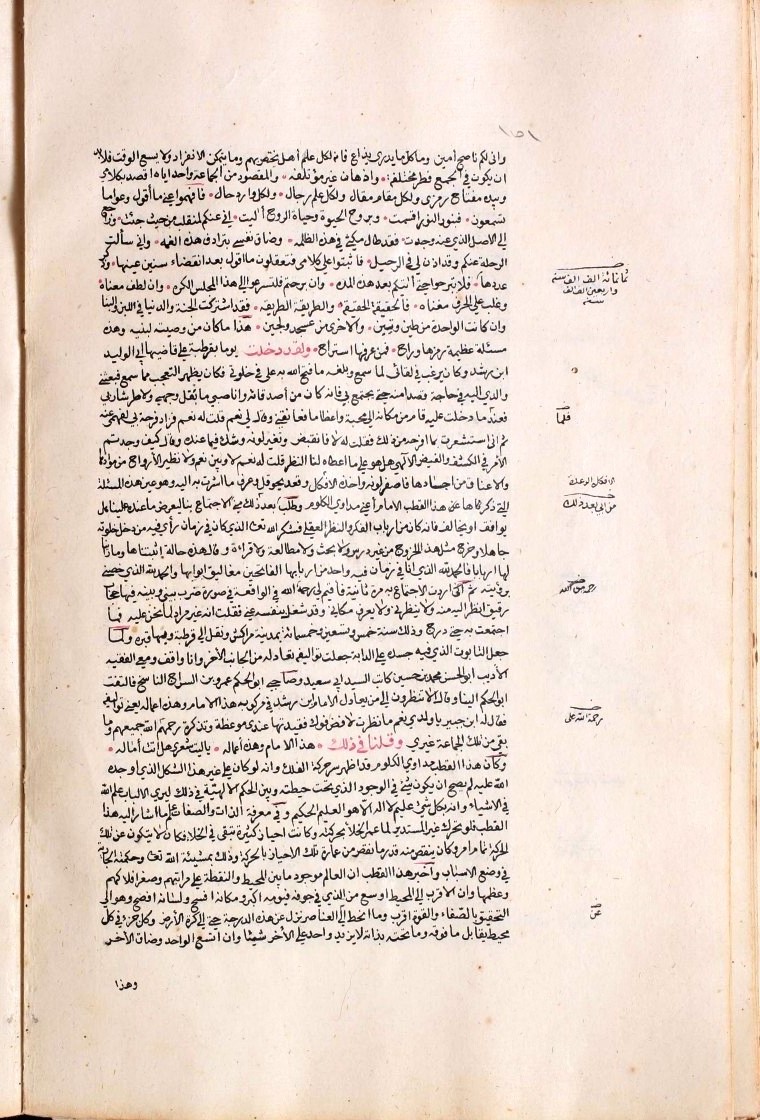 ١٥١
وانى لكم ناصح أمين وما كل ما يدرى يذاع فانه لكل علم أهل يختص بهم وما يتمكن الانفراد ولا يسع الوقت فلا بد
ان يكون فى الجمع فطر مختلفة واذهان غير مؤتلفة والمقصود من الجماعة واحد اياه اقصد بكلامى
وبيده مفتاح رمزى ولكل مقام مقال ولكل علم رجال ولكل وارد حال فافهموا عنى ما أقول وعوا ما
تسمعون فبنور النور اقسمت وبروح الحيوة وحياة الروح آليت انى عنكم لمنقلب من حيث جئت وراجع
الى الاصل الذى عنه وجدت فقد طال مكثى فى هذه الظلمة وضاق نفسى بترادف هذه الغمة وانى سألت
الرحلة عنكم وقد اذن لى فى الرحيل فاثبتوا على كلامى فتعقلون ما اقول بعد انقضاء سنين عينها وذكر
عددها فلا تبرحوا حتى آتيكم بعد هذه المدة وان برحتم فلتسرعوا الى هذا المجلس الكره وان لطف معناه
وغلب على الحرف مغناه فالحقيقة الحقيقة والطريقة الطريقة فقد اشتركت الجنة والدنيا فى اللبن والبنا
وان كانت الواحدة من طين وتبن والاخرى من عسجد ولجين هذا ما كان من وصيته لبنيه وهذه
مسئلة عظيمة رمزها وراح فمن عرفها استراح ولقد دخلت يوما بقرطبة على قاضيها ابى الوليد
ابن رشد وكان يرغب فى لقائى لما سمع وبلغه ما فتح الله به على فى خلوتى فكان يظهر التعجب مما سمع فبعثنى
والدى اليه فى حاجة قصدا منه حتى يجتمع بى فانه كان من أصدقائه وانا صبى ما بقل وجهى ولا طر شاربى
فعندما دخلت عليه قام من مكانه الى محبة واعظاما فعانقنى وقال لى نعم قلت له نعم فزاد فرحه بى لفهمى عنه
ثم انى استشعرت بما افرحه من ذلك فقلت له لا فانقبض وتغير لونه وشك فيما عنده وقال كيف وجدتم
الامر فى الكشف والفيض الالهى هل هو على ما اعطاه لنا النظر قلت له نعم لا وبين نعم ولا تطير الارواح من موادها
والاعناق من اجسادها فاصفر لونه واخذه الافكل وقعد يحوقل وعرف ما اشرت به اليه وهو عين هذه المسئلة
التى ذكرها عن هذا القطب الامام أعنى مداوى الكلوم وطلب بعد ذلك منى الاجتماع بنا ليعرض ما عنده علينا هل
يوافق او يخالف فانه كان من ارباب الفكر والنظر العقلى فشكر الله تعالى الذى كان فى زمان رأى فيه من دخل خلوته
جاهلا وخرج مثل هذا الخروج من غير درس ولا بحث ولا مطالعة ولا قراءة وقال هذه حالة اثبتناها وما رأينا
لها اربابا فالحمد لله الذى انا فى زمان فيه واحد من اربابها الفاتحين مغاليق ابوابها والحمد لله الذى خصنى
برؤيته ثم انى اردت الاجتماع به مرة ثانية فاقيم لى رحمه الله فى الواقعة فى صورة ضرب بينى وبينه فيها حجاب
رقيق انظر اليه منه ولا ينظرنى ولا يعرف مكانى وقد شغل بنفسه عنى فقلت انه غير مراد لما نحن عليه فما
اجتمعت به حتى درج وذلك سنة خمس وتسعين وخمسمائة بمدينة مراكش ونقل الى قرطبة وبها قبره ولما
جعل التابوت الذى فيه جسده على الدابة جعلت تواليفه تعادله من الجانب الآخر وانا واقف ومعى الفقيه
الأديب ابو الحسن محمد بن حسين كاتب السيد ابى سعيد وصاحبى ابو الحكم عمرو بن السراج الناسخ فالتفت
ابو الحكم الينا وقال الا تنظرون الى من يعادل الامام ابن رشد فى مركوبه هذا الامام وهذه اعماله يعنى تواليفه
فقال له ابن جبير يا ولدى نعم ما نظرت لا فض فوك فقيدتها عندى موعظة وتذكرة رحمهم الله جميعهم وما
بقى من تلك الجماعة غيرى وقلنا فى ذلك هذا الامام وهذه أعماله ياليت شعرى هل اتت آماله
وكان هذا القطب مداوى الكلوم قد اظهر سر حركة الفلك وانه لو كان على غير هذا الشكل الذى اوجده
الله عليه لم يصح ان يكون شىء فى الوجود الذى تحت حيطته وبين الحكم الالهية فى ذلك ليرى الالباب علم الله
فى الاشياء وانه بكل شىء عليم لا اله الا هو العليم الحكيم وفى معرفة الذات والصفات علم ما اشار اليه هذا
القطب فلو تحرك غير المستدير لما عمر الخلأ بحركته وكانت احياز كثيرة تبقى فى الخلأ فكان لا يتكون عن تلك
الحركة تمام امر وكان ينقص منه قدر ما نقص من عمارة تلك الاحياز بالحركة وذلك بمشيئة الله تعالى وحكمته الجارية
فى وضع الاسباب واخبر هذا القطب ان العالم موجود ما بين المحيط والنقطة على مراتبهم وصغر افلاكهم
وعظمها وان الاقرب الى المحيط اوسع من الذى فى جوفه فيومه اكبر ومكانه افسح ولسانه افصح وهو الى
التحقق بالصفاء والقوة اقرب وما انحط الى العناصر نزل عن هذه الدرجة حتى الى كرة الأرض وكل جزء فى كل
محيط يقابل ما فوقه وما تحته بذاته لا يزيد واحد على الآخر شيئا وان اتسع الواحد وضاق الآخر
وهذا
ثمانمائة الف الف سنة
واربعين الف الف
سنة
فلما
الافكل الرعدة
من ابى بعد ذلك
رحمة الله
رحمة الله على
عن